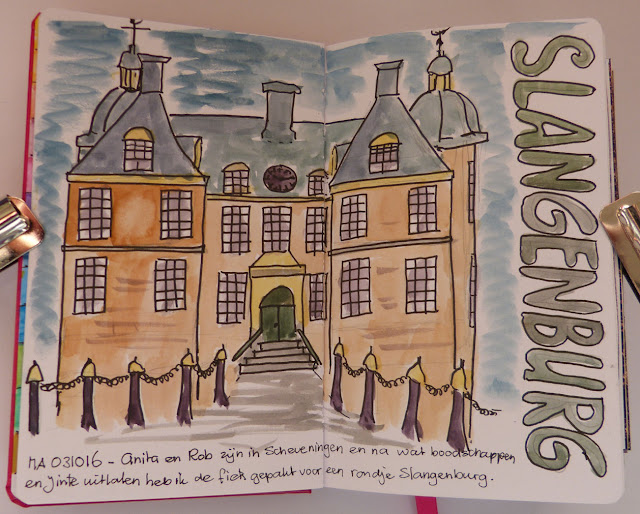 SLANGENBURG
MA 031016 - Anita en Rob zijn in Scheveningen en na wat boodschappen
en Jinte uitlaten heb ik de fiets gepakt voor een rondje Slangenburg.